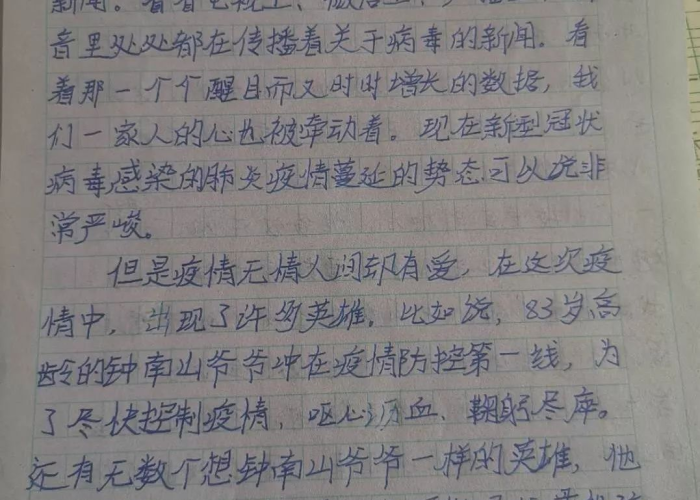 新闻。看看电视上、微信上、广播
音里处处都在传播着关于病毒的新闻。看
着那一个个醒目而又时时增长的数据，我
们一家人的心也被牵动着。现在新型冠状
病毒感染的肺炎疫情蔓延的势态可以说非
常严峻。
但是疫情无情人间却有爱，在这次疫
情中，出现了许多英雄。比如说，83岁高
龄的钟南山爷爷冲在疫情防控第一线，为
了尽快控制疫情，呕心沥血、鞠躬尽瘁。
还有无数个想钟南山爷爷一样的英雄，他